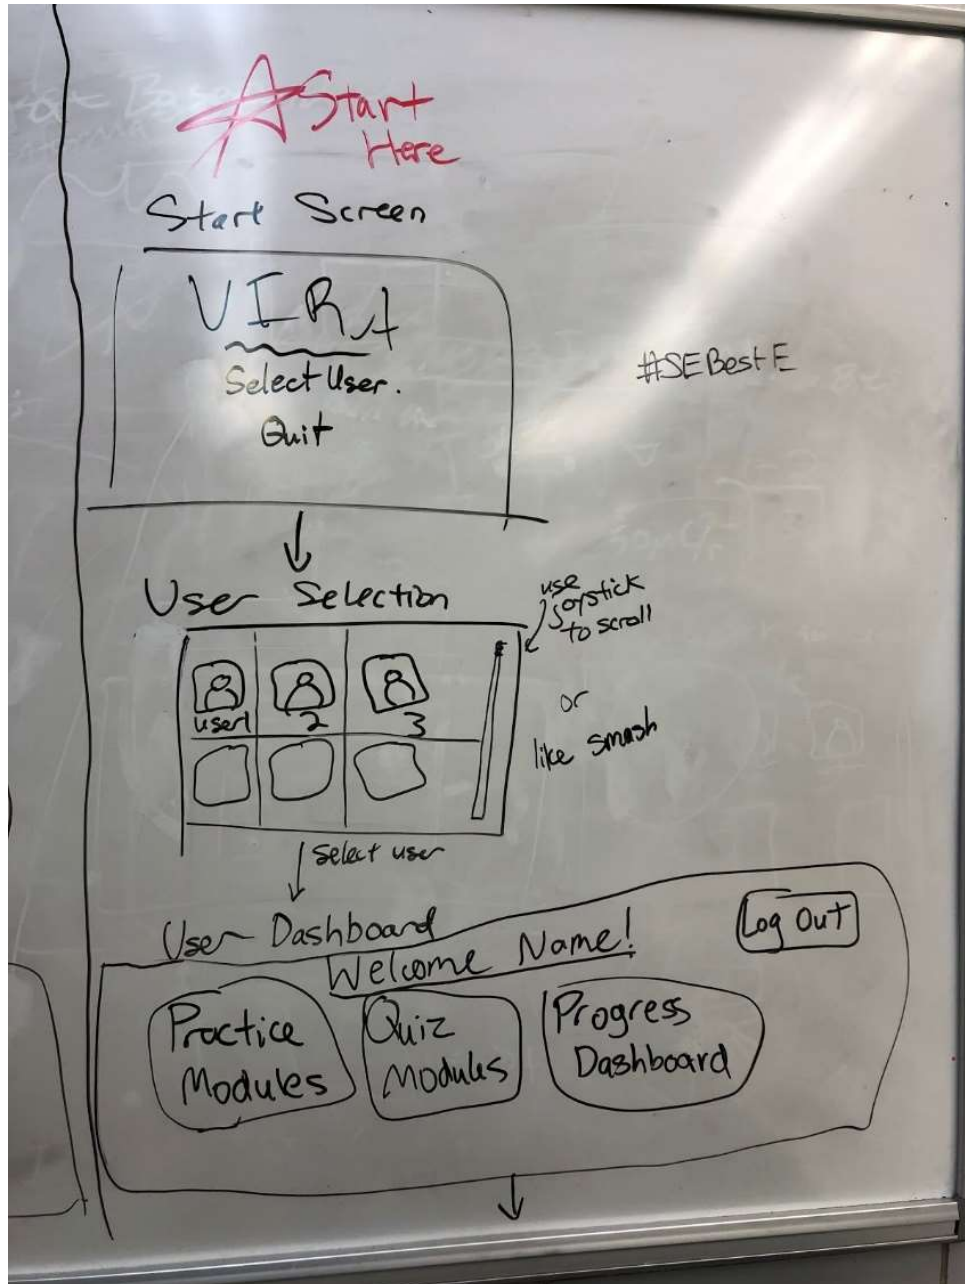 Start
Here
Start Screen
VIRA
Select User.
Quit
#SEBestE
User Selection
use
joystick
to scroll
or
like smash
user1
2
3
select user
User Dashboard
Log Out
Welcome Name!
Practice
Modules
Quiz
Modules
Progress
Dashboard